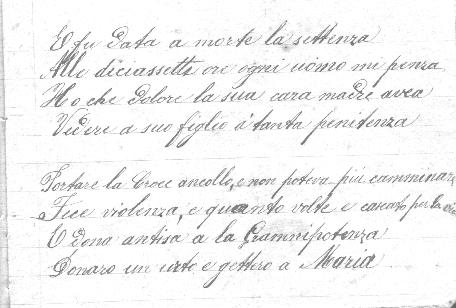 E fu data a morte la settenza
Alle diciassetti ore ogni uomo mi penza
Ho che dolore la sua cara madre avea
Videre a suo figlio a tanta penitenza
Portare la Croce ancollo, e non poteva più camminare
Fece violenza, e quanto volte e cascato per la via
E dona antisa a la Gramnipotenza
Donaro un urto e gettero a Maria